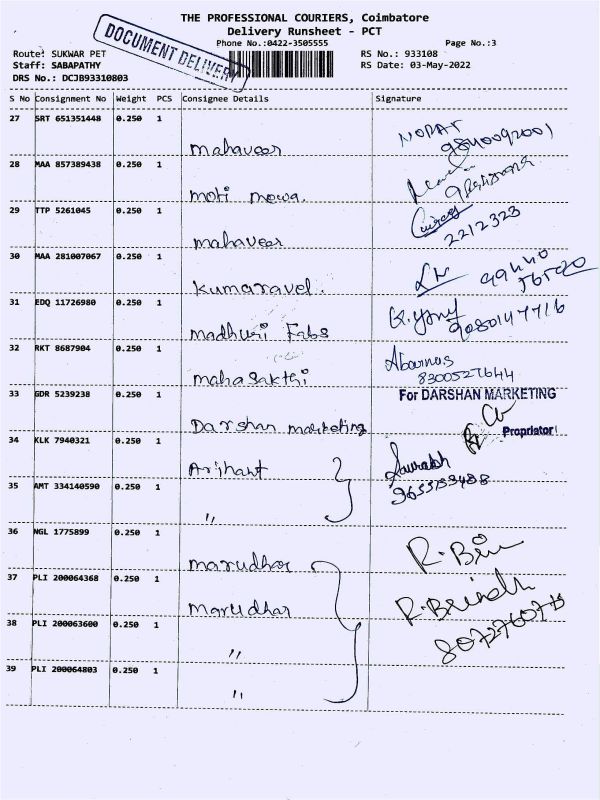 THE PROFESSIONAL COURIERS, Coimbatore
Delivery Runsheet - PCT
Phone No.:0422-3505555 Page No.:3
DOCUMENT DELIVERY
Route: SUKWAR PET RS No.: 933108
Staff: SABAPATHY RS Date: 03-May-2022
DRS No.: DCJB93310803
S No Consignment No Weight PCS Consignee Details Signature
27 SRT 651351448 0.250 1
Mahaveer
28 MAA 857389438 0.250 1
Moti Mowa.
29 TTP 5261045 0.250 1
Mahaveer 2212323
30 MAA 281007067 0.250 1
Kumaravel.
31 EDQ 11726980 0.250 1
Madhuri Fabs 9080147716
32 RKT 8687904 0.250 1
Mahasakthi 8300527644
33 GDR 5239238 0.250 1 For DARSHAN MARKETING
Darshan Marketing Propriator
34 KLK 7940321 0.250 1
Arihant Saurabh
35 AMT 334140590 0.250 1
"
36 NGL 1775899 0.250 1
Marudhar
37 PLI 200064368 0.250 1
Marudhar
38 PLI 200063600 0.250 1
"
39 PLI 200064803 0.250 1
"